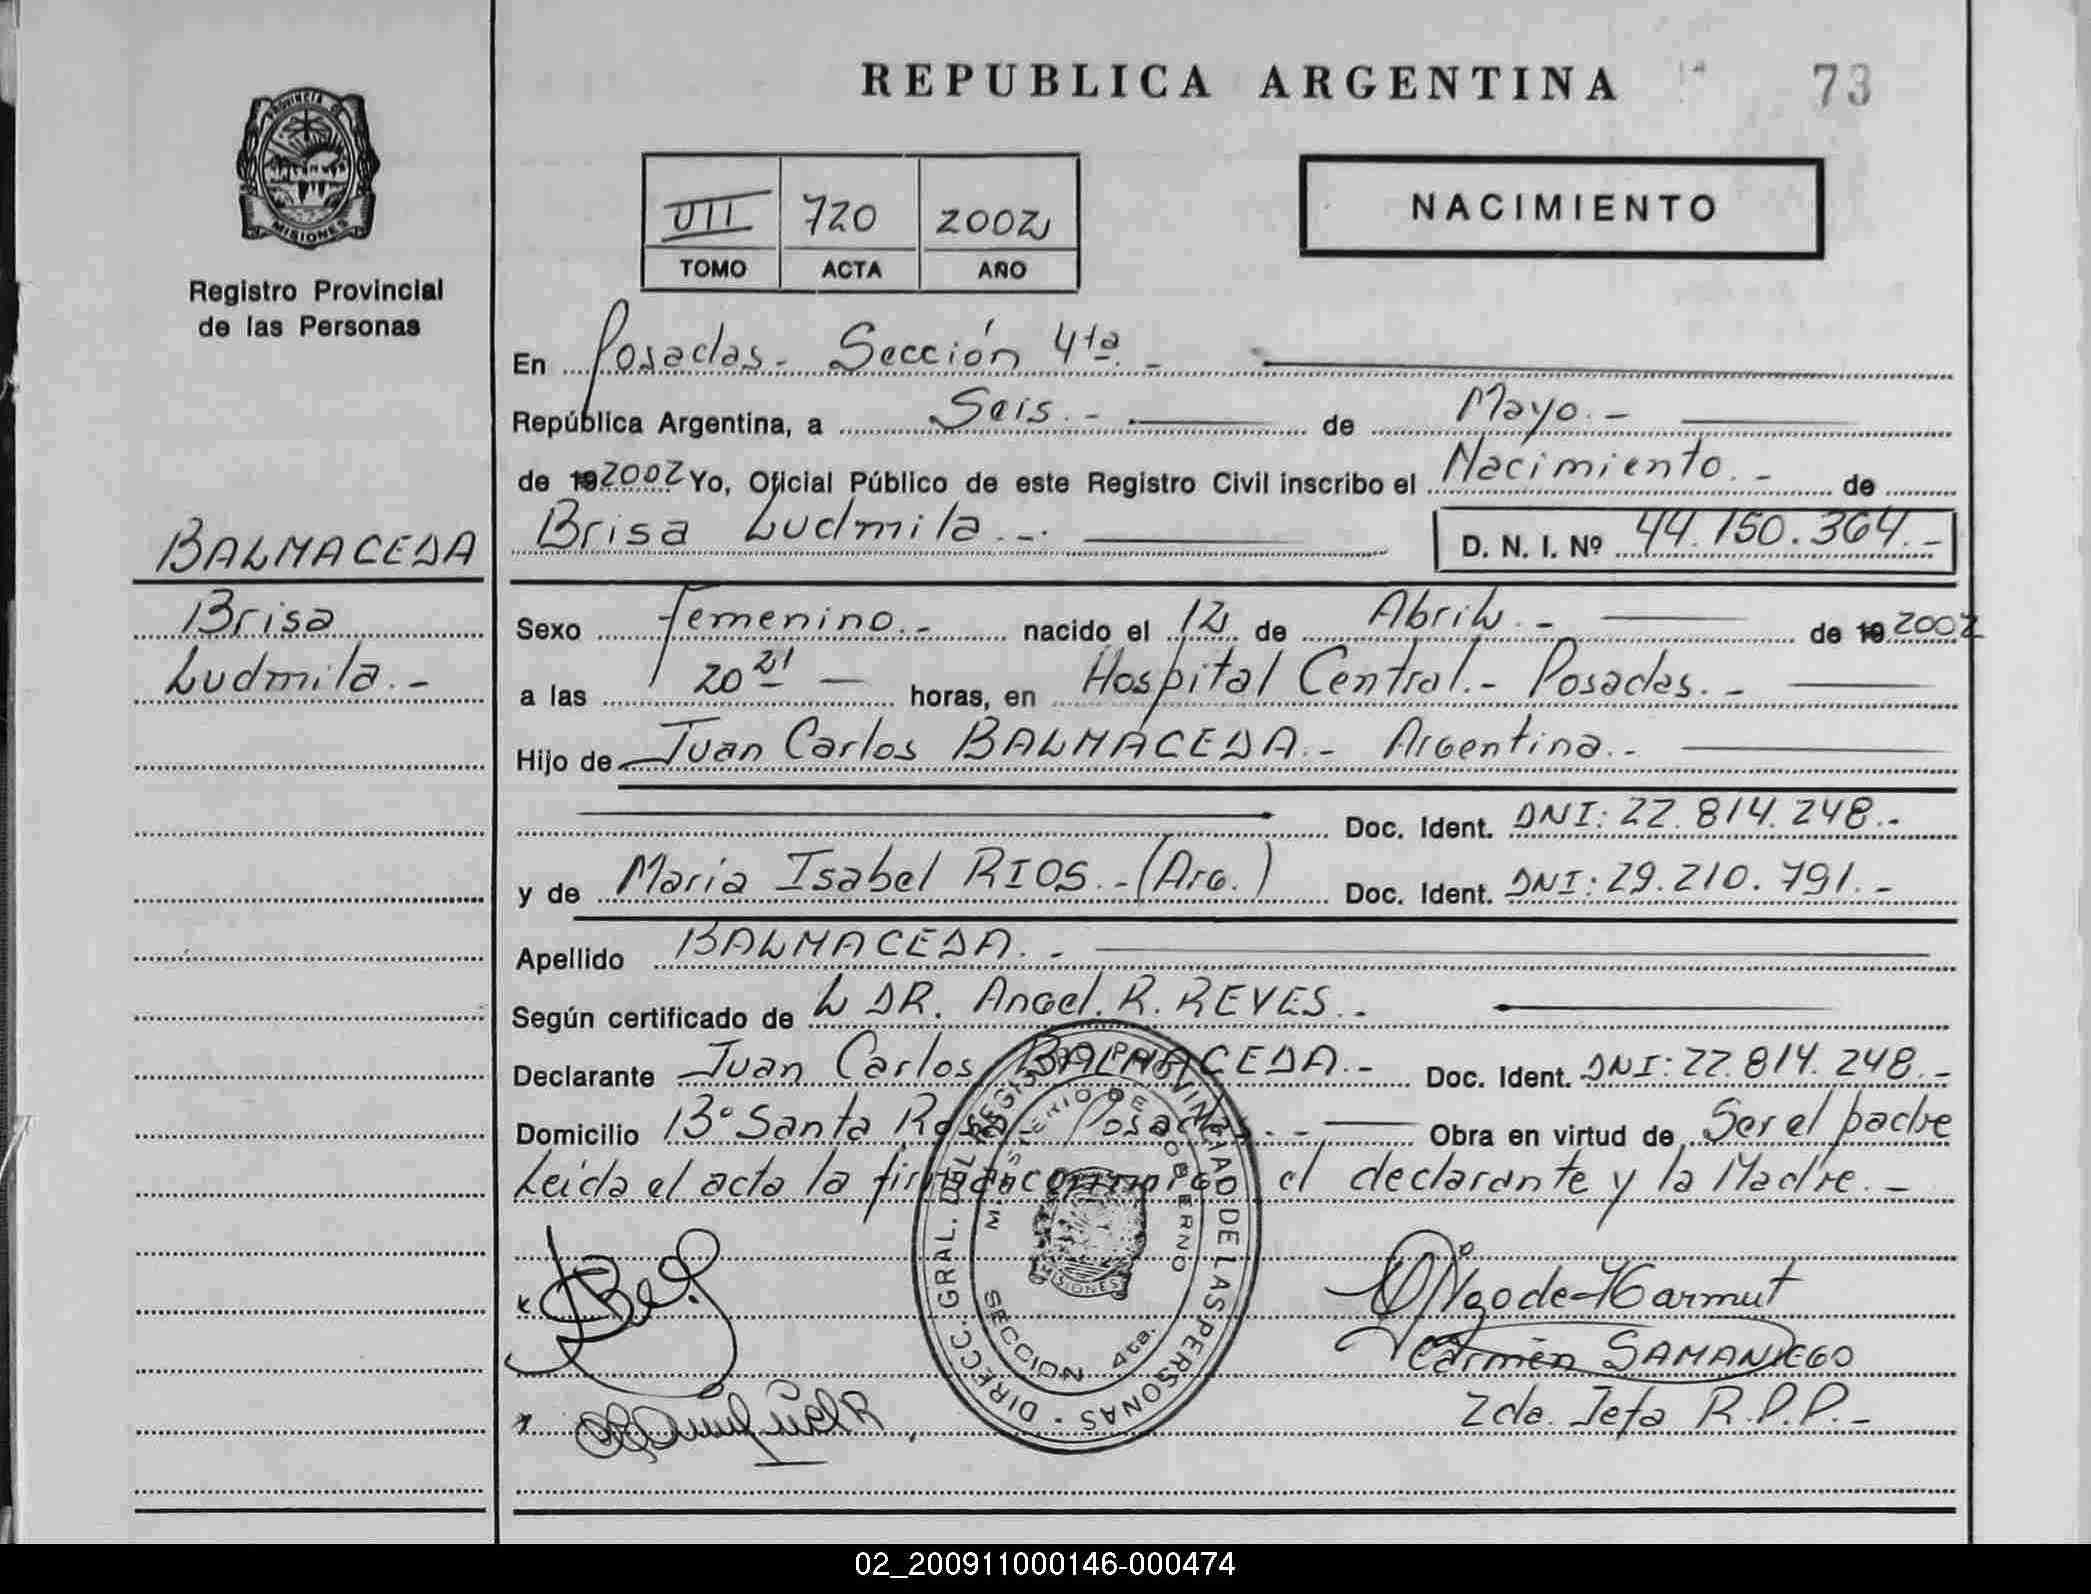 REPUBLICA ARGENTINA
73
PROVINCIA DE
MISIONES
Registro Provincial
de las Personas
VII 720 2002
TOMO ACTA AÑO
NACIMIENTO
En Posadas.- Sección 4ta.-
República Argentina, a Seis.- de Mayo.-
de 19 2002 Yo, Oficial Público de este Registro Civil inscribo el Nacimiento.- de
Brisa Ludmila.-. D. N. I. Nº 44.150.364.-
BALMACEDA
Brisa
Ludmila.-
Sexo femenino.- nacido el 12 de Abril.- de 19 2002
a las 20 21 horas, en Hospital Central.- Posadas.-
Hijo de Juan Carlos BALMACEDA.- Argentina.-
Doc. Ident. DNI: 22.814.248.-
y de María Isabel RIOS.-(Arg.) Doc. Ident. DNI: 29.210.791.-
Apellido BALMACEDA.-
Según certificado de L DR. Angel. R. REYES.-
Declarante Juan Carlos BALMACEDA.- Doc. Ident. DNI: 22.814.248.-
Domicilio Bº Santa Rosa- Posadas.- Obra en virtud de Ser el padre
Leida el acta la firman conmigo el declarante y la Madre.-
DIRECC. GRAL. DEL REGISTRO PROVINCIAL DE LAS PERSONAS
MINISTERIO DE GOBIERNO
MISIONES
SECCION 4ta.
Carmen SAMANIEGO
2da. Jefa R.P.P.-
02_200911000146-000474